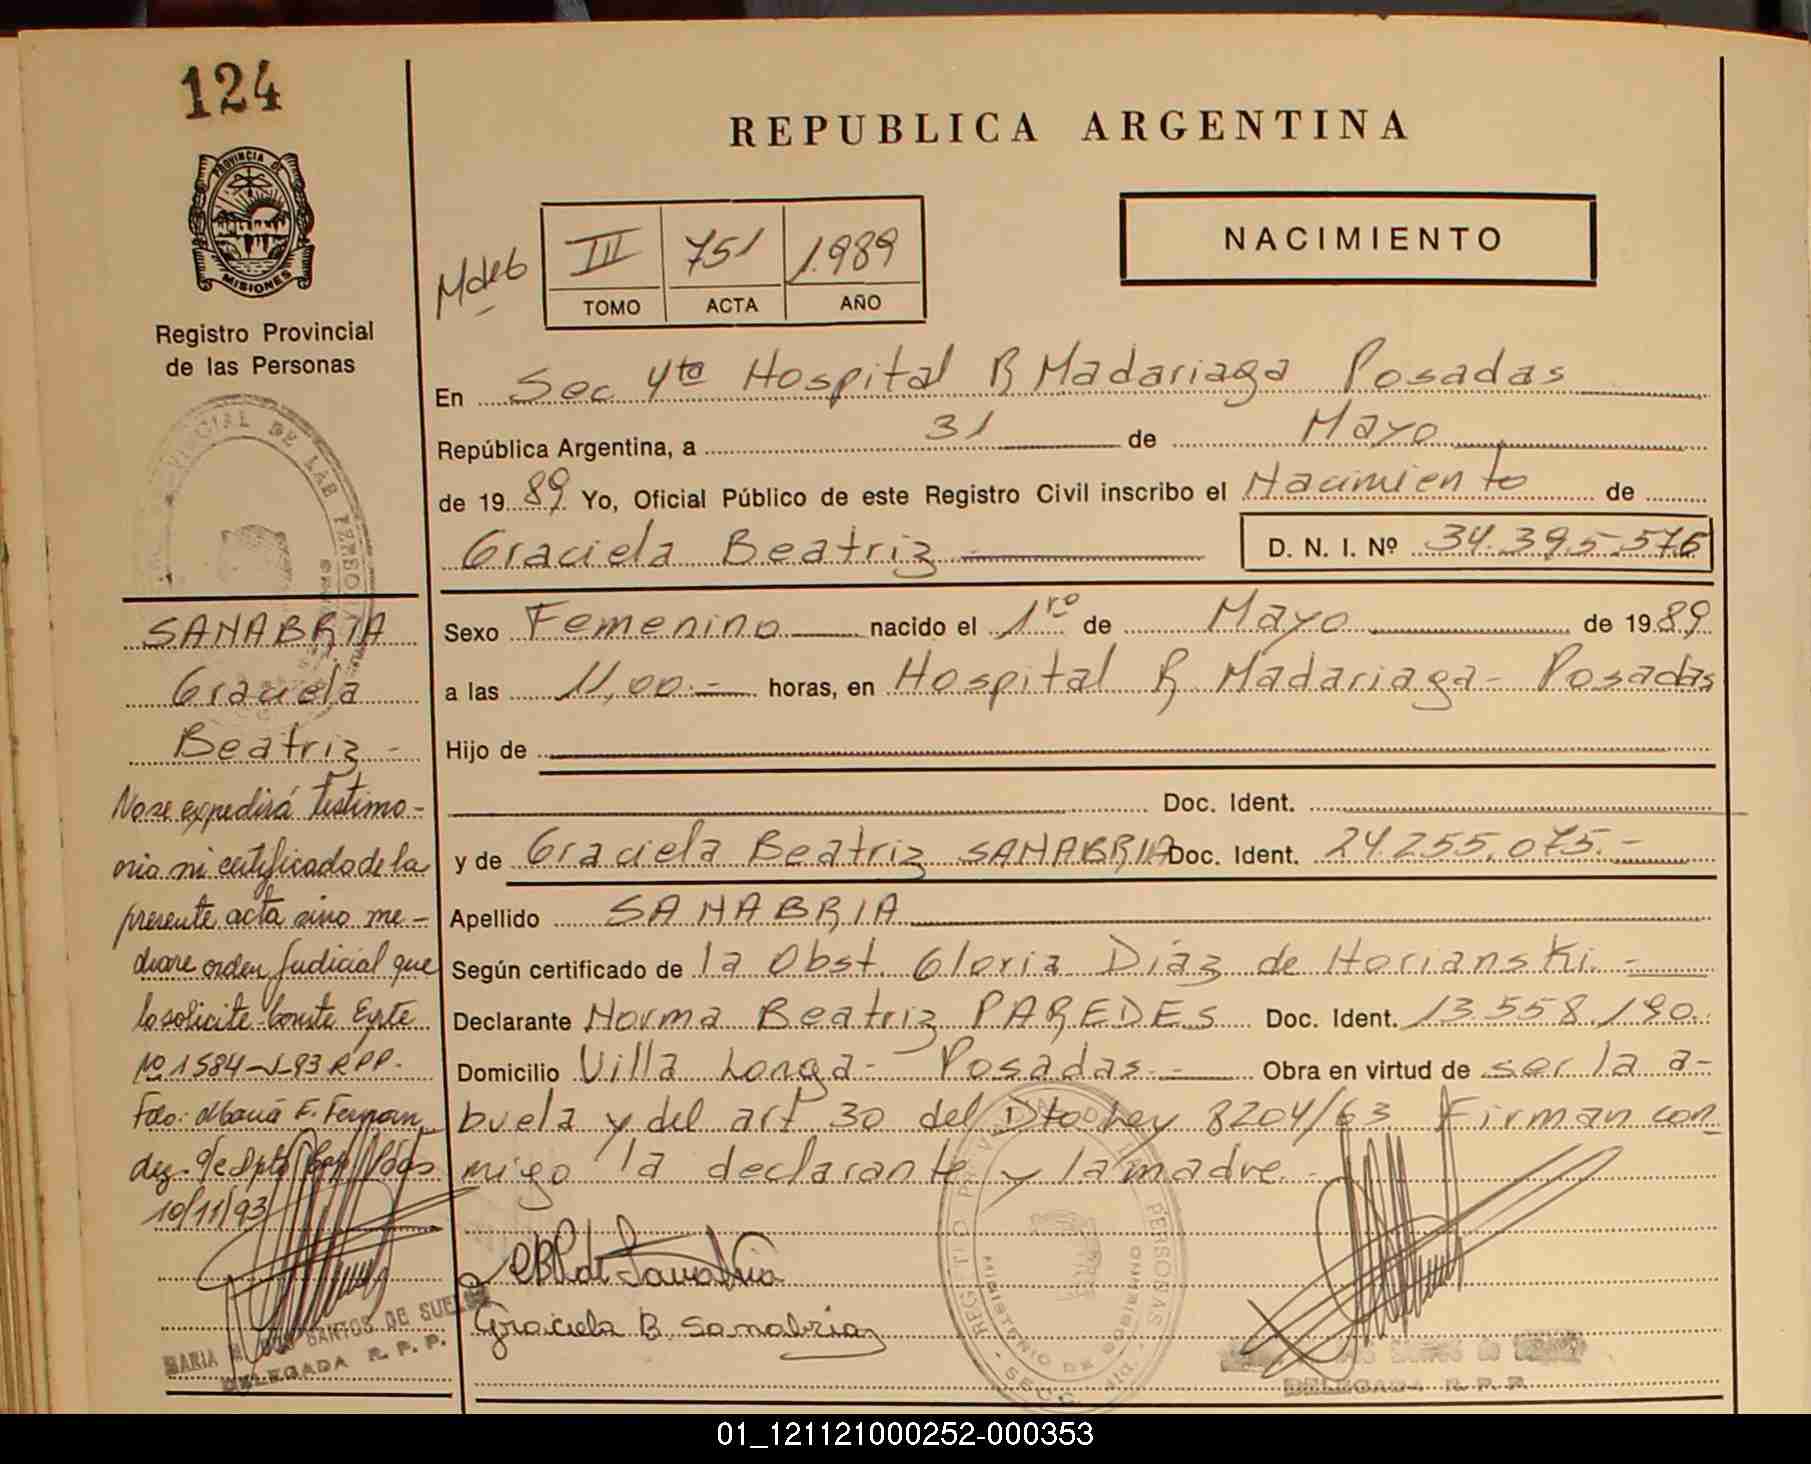 124
PROVINCIA DE
MISIONES
Registro Provincial
de las Personas
REPUBLICA ARGENTINA
NACIMIENTO
III 751 1.989
TOMO ACTA AÑO
En Sec 4ta Hospital R Madariaga Posadas
República Argentina, a 31 de Mayo
de 1989 Yo, Oficial Público de este Registro Civil inscribo el Nacimiento de
Graciela Beatriz D. N. I. Nº 34.395.576
Sexo Femenino nacido el 1ro de Mayo de 1989
a las 11,00.- horas, en Hospital R Madariaga - Posadas
Hijo de
Doc. Ident.
y de Graciela Beatriz SANABRIA Doc. Ident. 24.255.075.-
Apellido SANABRIA
Según certificado de la Obst. Gloria Diaz de Horianski.-
Declarante Norma Beatriz PAREDES Doc. Ident. 13.558.190.
Domicilio Villa Longa - Posadas.- Obra en virtud de ser la a-
buela y del art 30 del Dto Ley 8204/63 Firman con
migo la declarante y la madre.-
Graciela B Sanabria
SANABRIA
Graciela
Beatriz -
No se expedirá testimo-
nio ni certificado de la
presente acta sino me-
diare orden Judicial que
lo solicite. Conste Expte
Nº 1584-J-93 RPP.
Fdo: María E. Fernan
dez
10/11/93
MARIA DOS SANTOS DE
DELEGADA R. P. P.
DOS SANTOS de
DELEGADA R. P. P.
REGISTRO DE LAS PERSONAS
MINISTERIO DE GOBIERNO
01_121121000252-000353